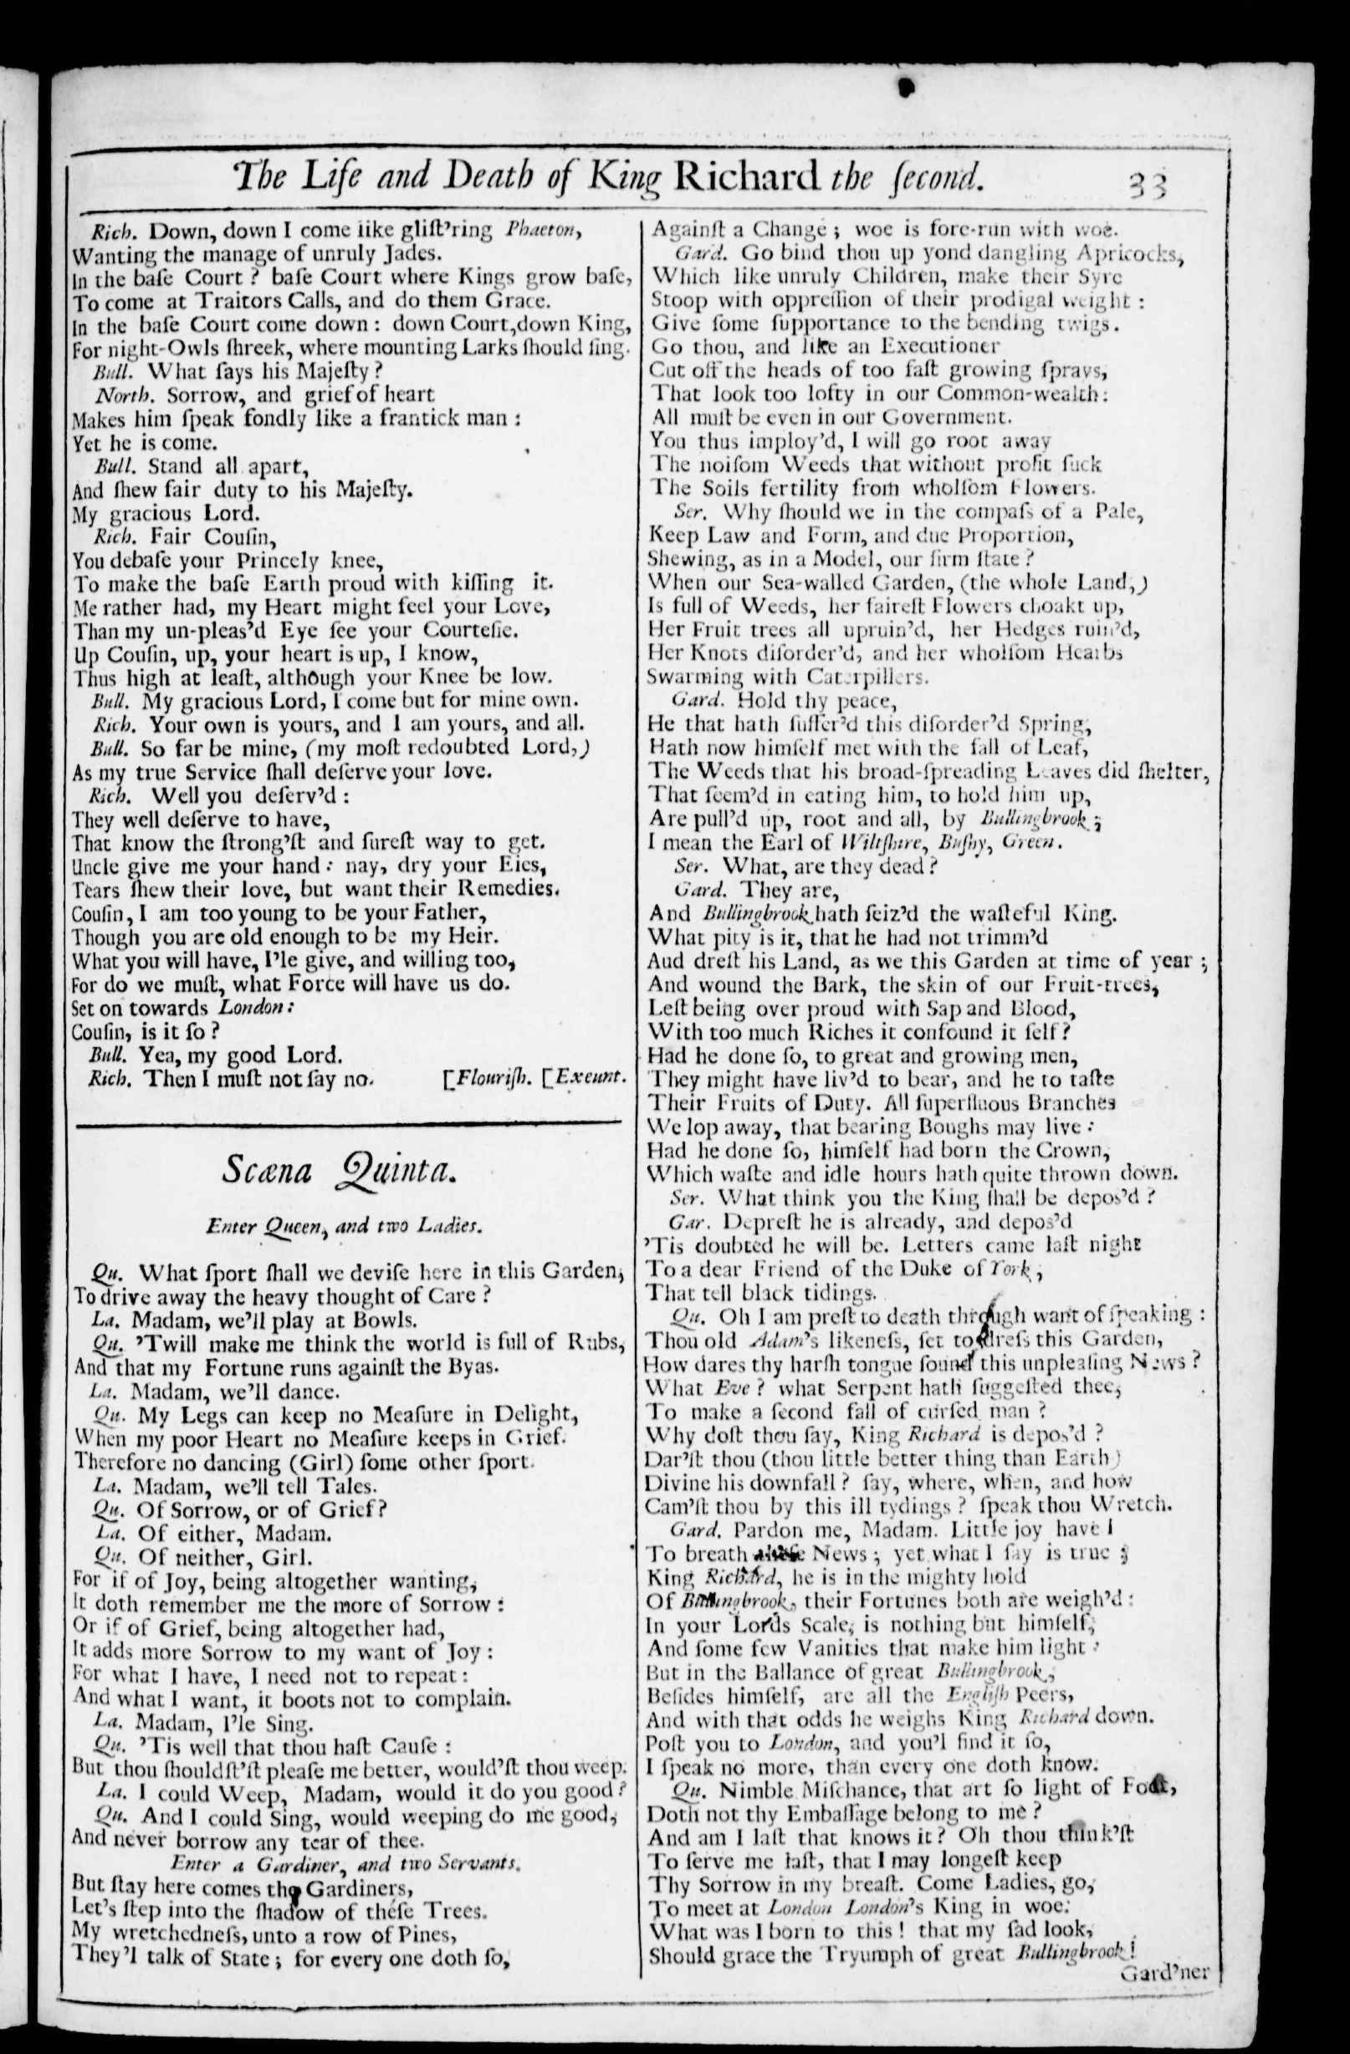 The Life and Death of King Richard the ſecond. 33
Rich. Down, down I come iike gliſt'ring Phaeton,
Wanting the manage of unruly Jades.
In the baſe Court? baſe Court where Kings grow baſe,
To come at Traitors Calls, and do them Grace.
In the baſe Court come down: down Court, down King,
For night-Owls ſhreek, where mounting Larks ſhould ſing.
Bull. What ſays his Majeſty?
North. Sorrow, and grief of heart
Makes him ſpeak fondly like a frantick man:
Yet he is come.
Bull. Stand all apart,
And ſhew fair duty to his Majeſty.
My gracious Lord.
Rich. Fair Couſin,
You debaſe your Princely knee,
To make the baſe Earth proud with kiſſing it.
Me rather had, my Heart might feel your Love,
Than my un-pleas'd Eye ſee your Courteſie.
Up Couſin, up, your heart is up, I know,
Thus high at leaſt, although your Knee be low.
Bull. My gracious Lord, I come but for mine own.
Rich. Your own is yours, and I am yours, and all.
Bull. So far be mine, (my moſt redoubted Lord,)
As my true Service ſhall deſerve your love.
Rich. Well you deſerv'd:
They well deſerve to have,
That know the ſtrong'ſt and ſureſt way to get.
Uncle give me your hand: nay, dry your Eies,
Tears ſhew their love, but want their Remedies.
Couſin, I am too young to be your Father,
Though you are old enough to be my Heir.
What you will have, I'le give, and willing too,
For do we muſt, what Force will have us do.
Set on towards London:
Couſin, is it ſo?
Bull. Yea, my good Lord.
Rich. Then I muſt not ſay no. [Flouriſh. [Exeunt.
Scæna Quinta.
Enter Queen, and two Ladies.
Qu. What ſport ſhall we deviſe here in this Garden,
To drive away the heavy thought of Care?
La. Madam, we'll play at Bowls.
Qu. 'Twill make me think the world is full of Rubs,
And that my Fortune runs againſt the Byas.
La. Madam, we'll dance.
Qu. My Legs can keep no Meaſure in Delight,
When my poor Heart no Meaſure keeps in Grief.
Therefore no dancing (Girl) ſome other ſport.
La. Madam, we'll tell Tales.
Qu. Of Sorrow, or of Grief?
La. Of either, Madam.
Qu. Of neither, Girl.
For if of Joy, being altogether wanting,
It doth remember me the more of Sorrow:
Or if of Grief, being altogether had,
It adds more Sorrow to my want of Joy:
For what I have, I need not to repeat:
And what I want, it boots not to complain.
La. Madam, I'le Sing.
Qu. 'Tis well that thou haſt Cauſe:
But thou ſhouldſt'ſt pleaſe me better, would'ſt thou weep.
La. I could Weep, Madam, would it do you good?
Qu. And I could Sing, would weeping do me good,
And never borrow any tear of thee.
Enter a Gardiner, and two Servants.
But ſtay here comes the Gardiners,
Let's ſtep into the ſhadow of theſe Trees.
My wretchedneſs, unto a row of Pines,
They'l talk of State; for every one doth ſo,
Againſt a Change; woe is fore-run with woe.
Gard. Go bind thou up yond dangling Apricocks,
Which like unruly Children, make their Syre
Stoop with oppreſſion of their prodigal weight:
Give ſome ſupportance to the bending twigs.
Go thou, and like an Executioner
Cut off the heads of too faſt growing ſprays,
That look too lofty in our Common-wealth:
All muſt be even in our Government.
You thus imploy'd, I will go root away
The noiſom Weeds that without profit ſuck
The Soils fertility from wholſom Flowers.
Ser. Why ſhould we in the compaſs of a Pale,
Keep Law and Form, and due Proportion,
Shewing, as in a Model, our firm ſtate?
When our Sea-walled Garden, (the whole Land,)
Is full of Weeds, her faireſt Flowers choakt up,
Her Fruit trees all upruin'd, her Hedges ruin'd,
Her Knots diſorder'd, and her wholſom Hearbs
Swarming with Caterpillers.
Gard. Hold thy peace,
He that hath ſuffer'd this diſorder'd Spring,
Hath now himſelf met with the fall of Leaf,
The Weeds that his broad-ſpreading Leaves did ſhelter,
That ſeem'd in eating him, to hold him up,
Are pull'd up, root and all, by Bullingbrook;
I mean the Earl of Wiltſhire, Buſhy, Green.
Ser. What, are they dead?
Gard. They are,
And Bullingbrook hath ſeiz'd the waſteful King.
What pity is it, that he had not trimm'd
Aud dreſt his Land, as we this Garden at time of year;
And wound the Bark, the skin of our Fruit-trees,
Leſt being over proud with Sap and Blood,
With too much Riches it confound it ſelf?
Had he done ſo, to great and growing men,
They might have liv'd to bear, and he to taſte
Their Fruits of Duty. All ſuperfluous Branches
We lop away, that bearing Boughs may live:
Had he done ſo, himſelf had born the Crown,
Which waſte and idle hours hath quite thrown down.
Ser. What think you the King ſhall be depos'd?
Gar. Depreſt he is already, and depos'd
'Tis doubted he will be. Letters came laſt night
To a dear Friend of the Duke of York,
That tell black tidings.
Qu. Oh I am preſt to death through want of ſpeaking:
Thou old Adam's likeneſs, ſet to dreſs this Garden,
How dares thy harſh tongue ſound this unpleaſing News?
What Eve? what Serpent hath ſuggeſted thee,
To make a ſecond fall of curſed man?
Why doſt thou ſay, King Richard is depos'd?
Dar'ſt thou (thou little better thing than Earth)
Divine his downfall? ſay, where, when, and how
Cam'ſt thou by this ill tydings? ſpeak thou Wretch.
Gard. Pardon me, Madam. Little joy have I
To breath theſe News; yet what I ſay is true;
King Richard, he is in the mighty hold
Of Bullingbrook, their Fortunes both are weigh'd:
In your Lords Scale, is nothing but himſelf,
And ſome few Vanities that make him light:
But in the Ballance of great Bullingbrook,
Beſides himſelf, are all the Engliſh Peers,
And with that odds he weighs King Richard down.
Poſt you to London, and you'l find it ſo,
I ſpeak no more, than every one doth know.
Qu. Nimble Miſchance, that art ſo light of Foot,
Doth not thy Embaſſage belong to me?
And am I laſt that knows it? Oh thou think'ſt
To ſerve me laſt, that I may longeſt keep
Thy Sorrow in my breaſt. Come Ladies, go,
To meet at London London's King in woe.
What was I born to this! that my ſad look,
Should grace the Tryumph of great Bullingbrook!
Gard'ner